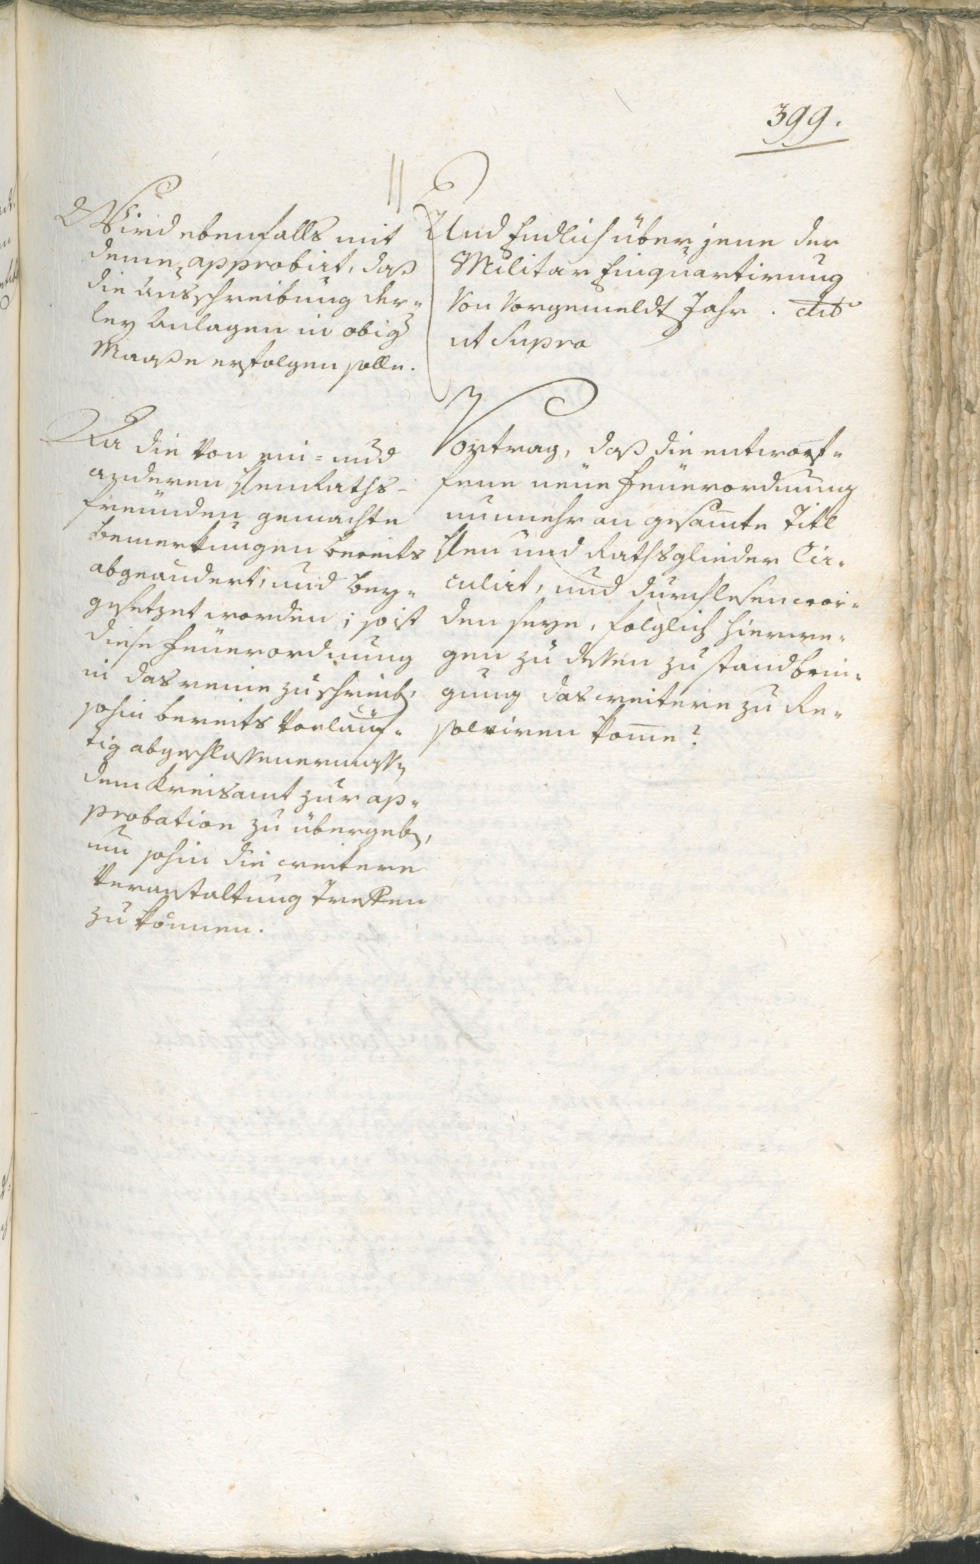 399.
Wird ebenfalls mit
deme approbirt, daß
die ausschreibung der-
ley anlagen in obig
Maaße erfolgen solle.
Und Endlich über jene der
Militar Einquartirung
Von Vorgemeldt Jahr.
ut Supra
Da die von ein- und
anderen Raths-
freünden gemachte
bemerkungen bereits
abgeändert, und bey-
gesetzet worden; so ist
diese feüerordnung
in das reine zu schreib,
sohin bereits Vorläuf-
tig abgeschlossenermass
dem Kreisamt zur ap-
probation zu übergeb,
um sohin die weitere
Veranstaltung Treffen
zu können.
Vortrag, daß die entworf-
fene neüe feüerordnung
nunmehr an gesamte Titl
und Rathsglieder Cir-
culirt, und durchlesen wor-
den seye, folglich hierwe-
gen zu dessen zustandbrin-
gung das weitere zu Re-
solviren kome?